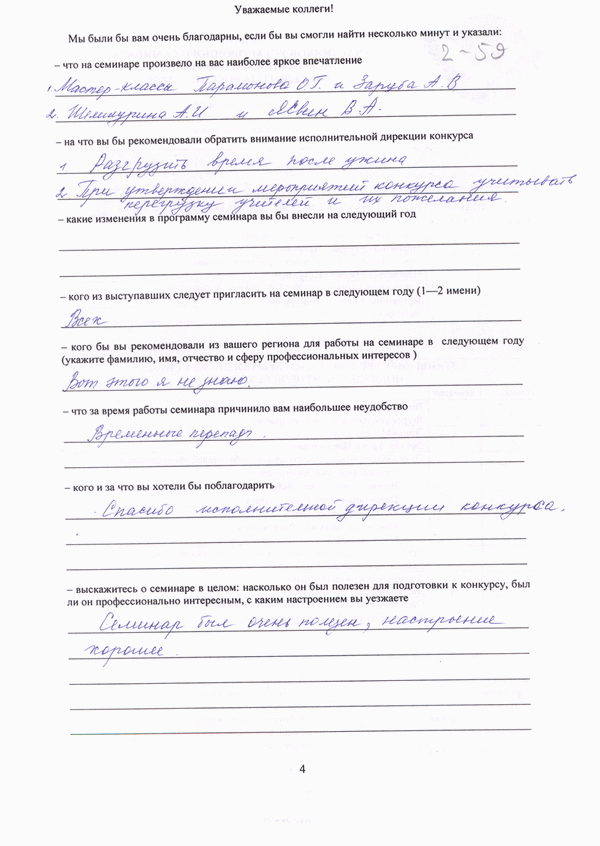 Уважаемые коллеги!
Мы были бы вам очень благодарны, если бы вы смогли найти несколько минут и указали:
2-59
– что на семинаре произвело на вас наиболее яркое впечатление
1. Мастер-классы Парамонова О.Г. и Заруба А.В
2. А.И и Ясвин В.А.
– на что вы бы рекомендовали обратить внимание исполнительной дирекции конкурса
1 Разгрузить время после ужина
2 При утверждении мероприятий конкурса учитывать
перегрузку учителей и их пожелания.
– какие изменения в программу семинара вы бы внесли на следующий год
– кого из выступавших следует пригласить на семинар в следующем году (1—2 имени)
Всех
– кого бы вы рекомендовали из вашего региона для работы на семинаре в следующем году
(укажите фамилию, имя, отчество и сферу профессиональных интересов )
Вот этого я не знаю.
– что за время работы семинара причинило вам наибольшее неудобство
Временные перепады.
– кого и за что вы хотели бы поблагодарить
Спасибо исполнительной дирекции конкурса.
– выскажитесь о семинаре в целом: насколько он был полезен для подготовки к конкурсу, был
ли он профессионально интересным, с каким настроением вы уезжаете
Семинар был очень полезен, настроение
хорошее.
4